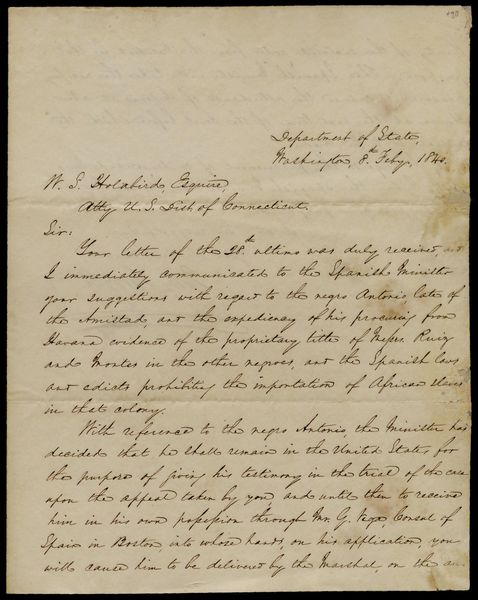 Department of State,
Washington, 8.th Feby. 1840.
W. S. Holabird, Esquire,
Atty U. S. Dist. of Connecticut.
Sir:
Your letter of the 28.th ultimo was duly received, and
I immediately communicated to the Spanish Minister
your suggestions with regard to the negro Antonio, late of
the Amistad, and the expediency of his procuring from
Havana evidence of the proprietary title of Messrs. Ruiz
and Montes in the other negroes, and the Spanish laws
and edicts prohibiting the importation of African slaves
in that colony.
With reference to the negro Antonio, the Minister has
decided that he shall remain in the United States for
the purpose of giving his testimony in the trial of the case
upon the appeal taken by you, and until then to receive
him in his own possession through Mr. G. Vega Consul of
Spain in Boston, into whose hands, on his application, you
will cause him to be delivered by the Marshal, on the